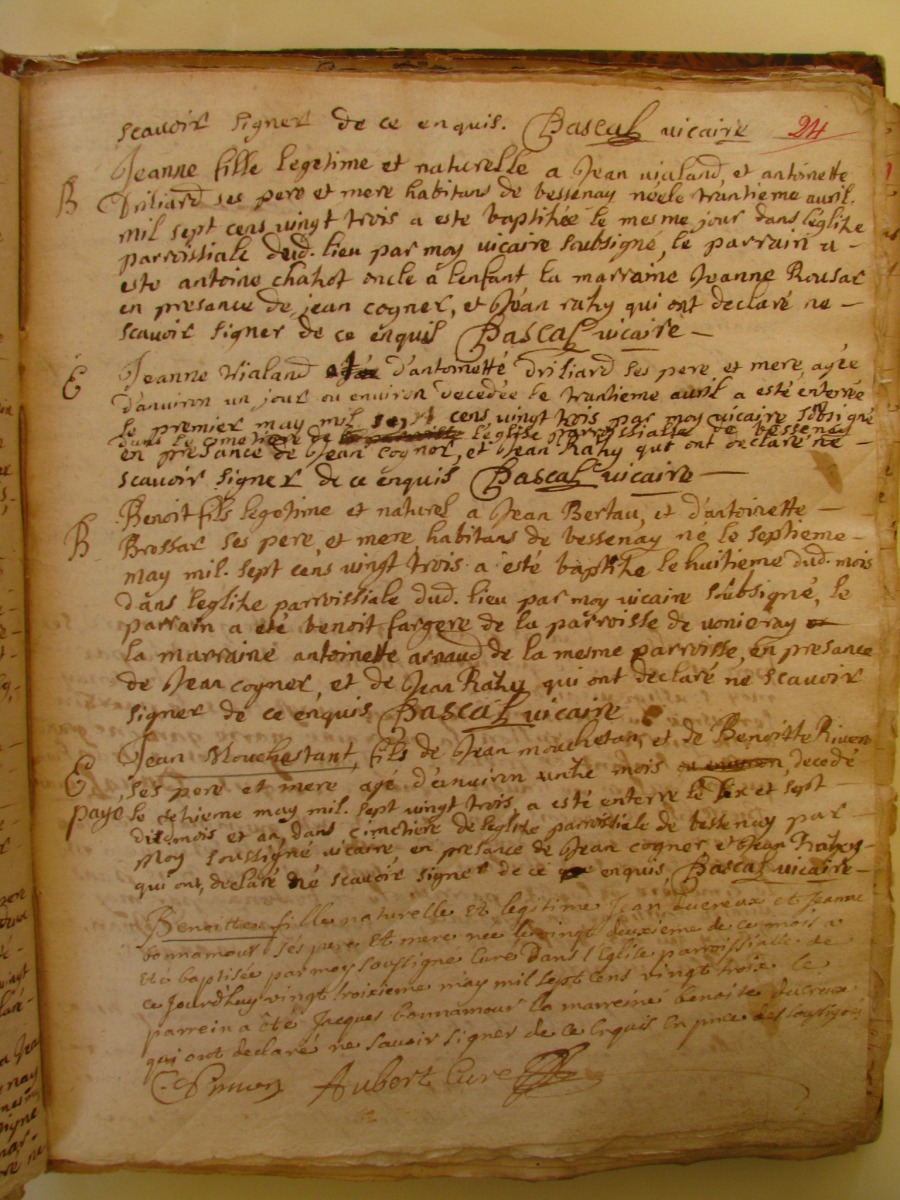 scavoir signer de ce enquis. Pascal vicaire 24
Jeanne fille legetime et naturelle a Jean vialand, et antoinette
B Driliard ses pere et mere habitans de bessenay née le trantieme avril.
mil sept cens vingt trois a esté baptisée le mesme jour dans l'eglise
parroissiale dud. lieu par moy vicaire soubsigné, le parrain a
esté antoine chahot oncle à l'enfant la marraine Jeanne Rousar
en presance de jean cogner, et Jean rahy qui ont declaré ne
scavoir signer de ce enquis Pascal vicaire
E Jeanne vialand d'antoinette driliard ses pere et mere, agée
d'anviron un jour ou environ decedée le trantieme avril a esté enterré
le premier may mil sept cens vingt trois par moy vicaire sobsigné
dans le cimetiere de l'eglise parroissialle de bessenay
en presance de Jean cogner, et Jean Rahy qui ont declaré ne
scavoir signer de ce enquis Pascal vicaire
Benoit fils legetime et naturel a Jean Bertau, et d'antoinette
B Brossar ses pere, et mere habitans de bessenay né le septieme
may mil. sept cens vingt trois a esté baptise le huitieme dud. mois
dans l'eglise parroissiale dud. lieu par moy vicaire soubsigné, le
parrain a eté benoit fargere de la parroisse de
la marraine antoinette arnaud de la mesme parroisse, en presance
de Jean cogner, et de Jean Rahy qui ont declaré ne scavoir
signer de ce enquis Pascal vicaire
Jean Mouchestant, fils de Jean mouchetan, et de Benoitte
E ses pere et mere agé d'anviron unse mois decedé
payé le may mil. sept vingt trois, a esté enterre le et sept
mois et an, dans cimetiere de l'eglise parroissiale de bessenay par
moy soussigné vicaire en presance de Jean cogner et Jean Rahy
qui ont declaré né scavoir signer de ce enquis, Pascal vicaire
Benoitte fille naturelle et legitime Jean ducreux et Jeanne
bonnamour ses pere et mere nee le vingt deuxieme de ce mois a
eté baptisée par moy soussigne curé dans l'Eglise parroissialle de
ce jourdhuy vingt troixieme may mil sept cens vingt trois le
parrein a été Jacques bonnamour la marreine benoite ducreux
qui ont declaré ne savoir signer de ce Enquis En pnce des soussignés
Aubert Curé